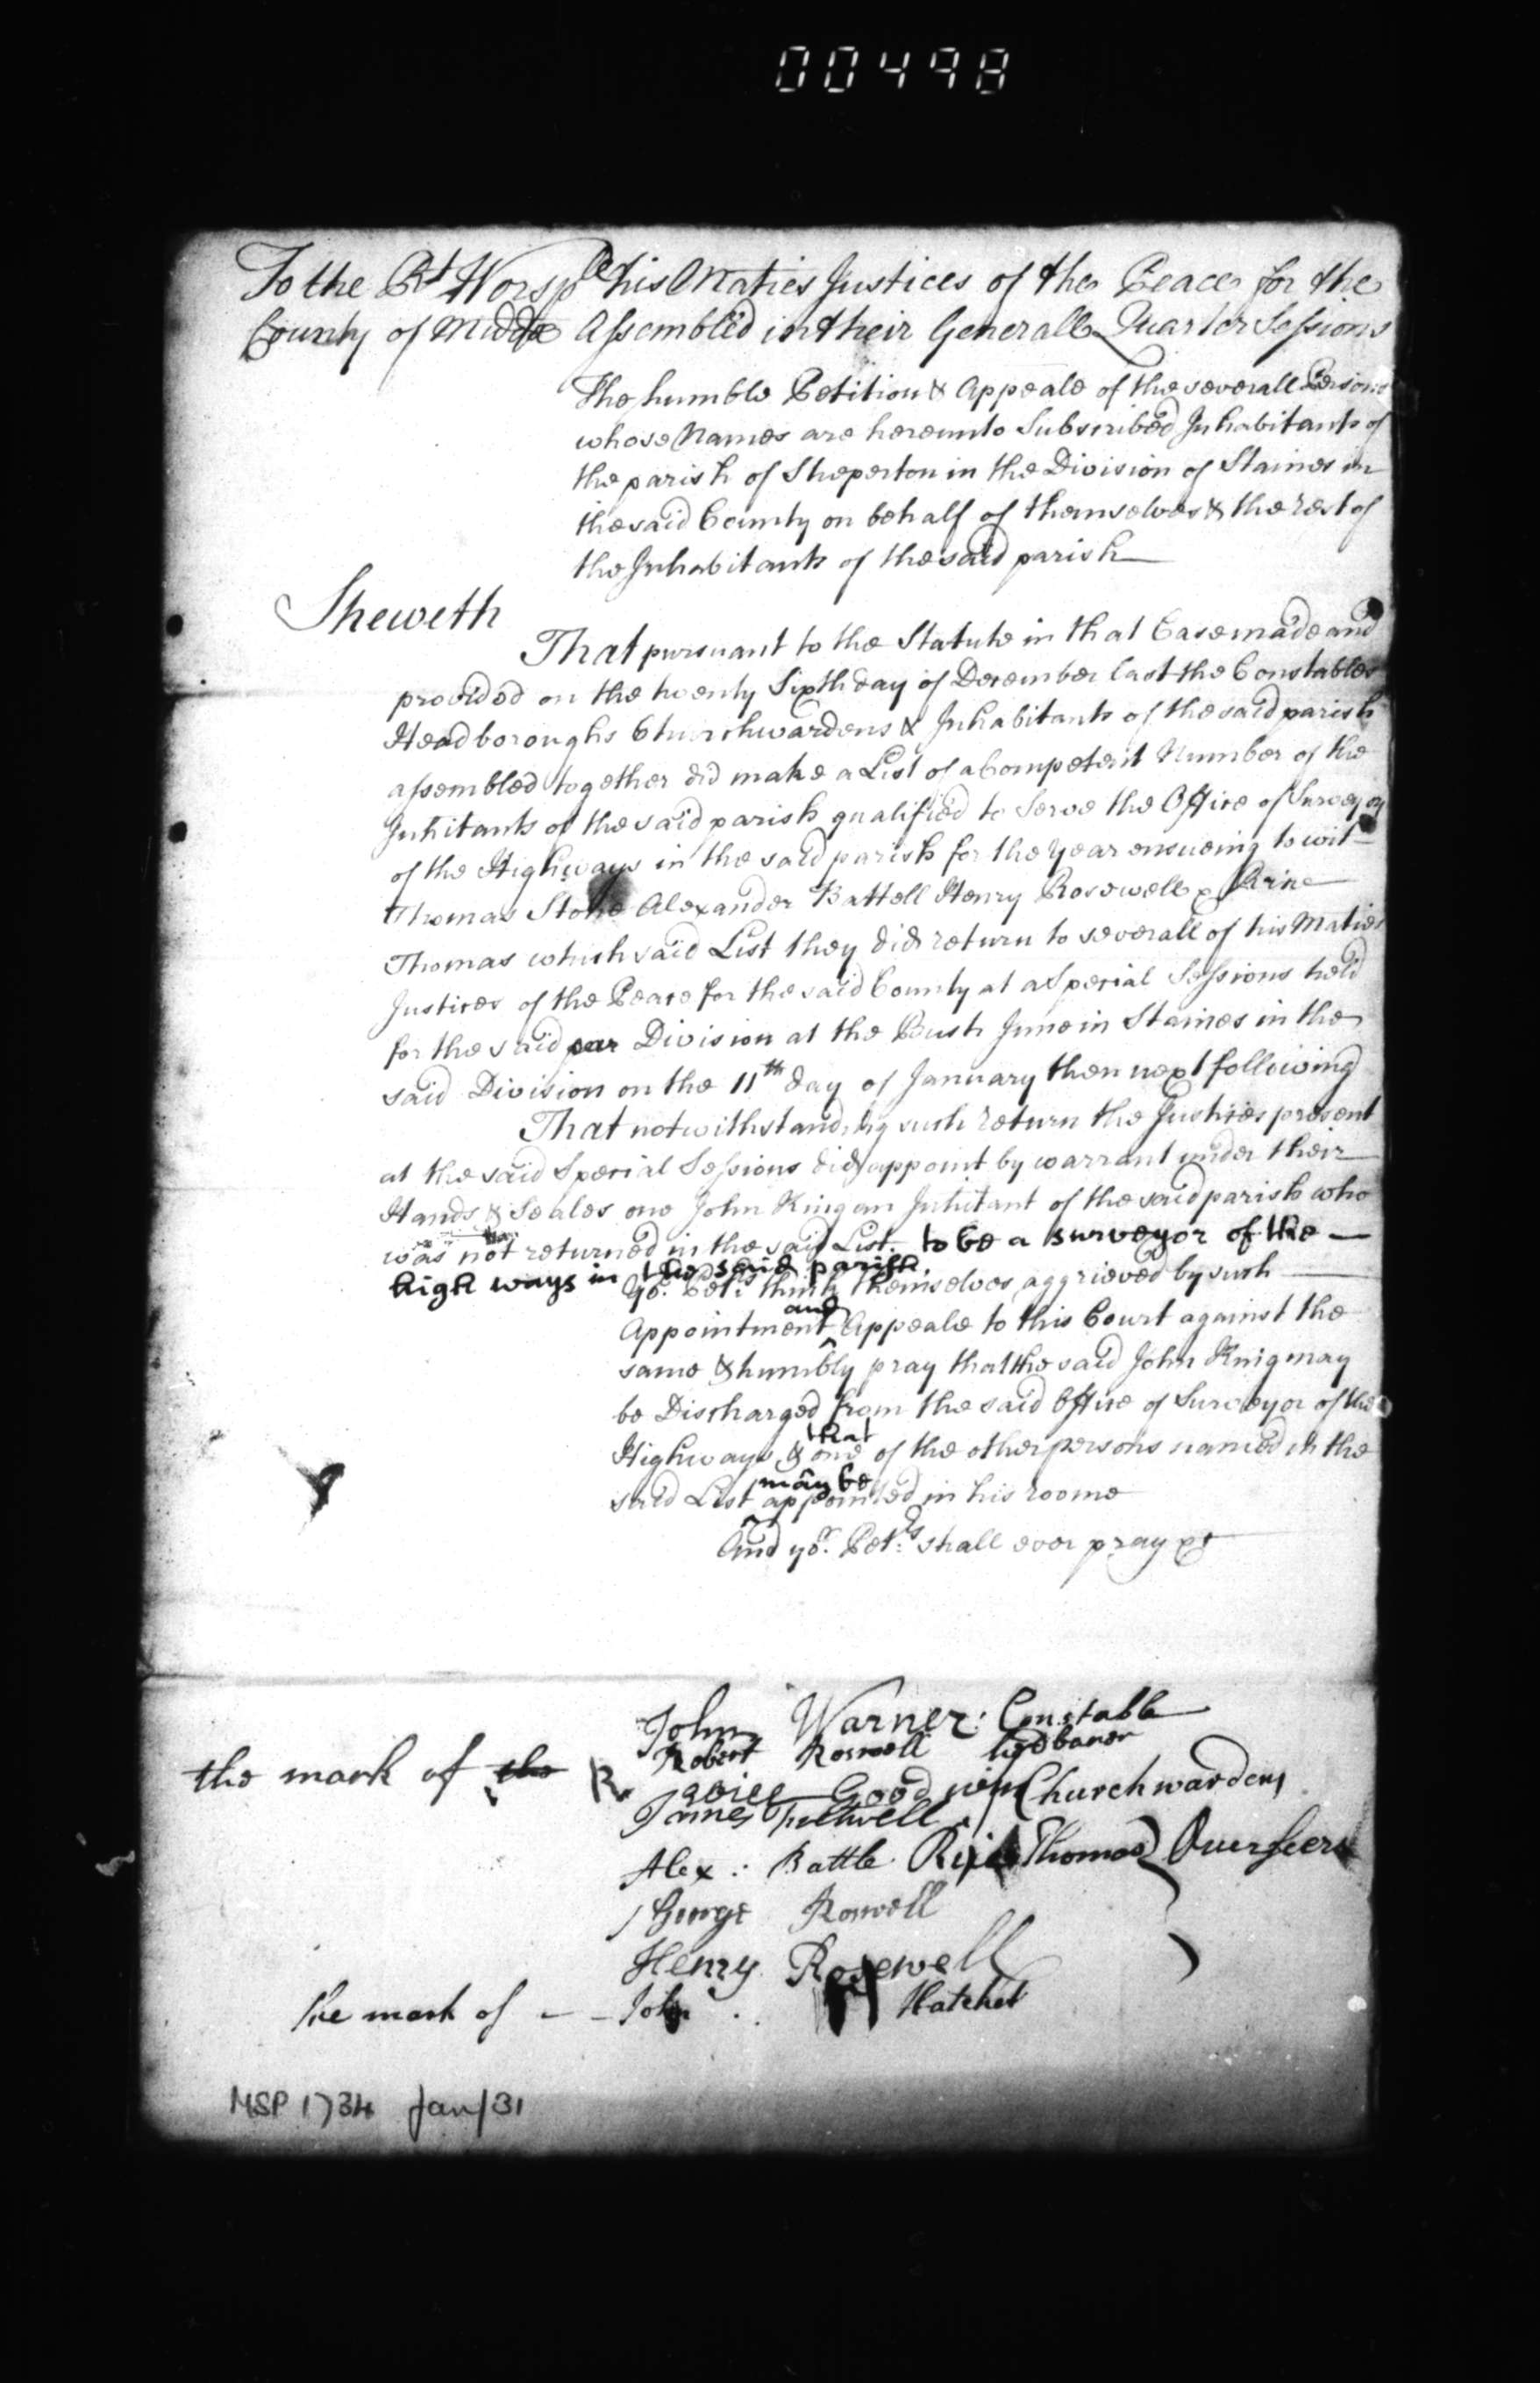 00498
To the Rt Worspll his Maties Justices of the Peace for the
County of Middx Assembled in their Generall Quarter Sessions
The humble Petition & Appeale of the severall Persons
whose Names are hereunto Subscribed Inhabitants of
the parish of Sheperton in the Division of Staines in
the said County on behalf of themselves & the rest of
the Inhabitants of the said parish
Sheweth
That pursuant to the Statute in that Case made and
provided on the twenty Sixth day of December last the Constables
Headboroughs Churchwardens & Inhabitants of the said parish
assembled together did make a List of a Competent Number of the
Inhitants of the said parish qualified to Serve the Office of Surveyor
of the Highways in the said parish for the Year ensueing to wit
Thomas Stone Alexander Battell Henry Rosewell &
Thomas which said List they did return to severall of his Maties
Justices of the Peace for the said County at a Special Sessions held
for the said par Division at the Bush Inne in Staines in the
said Division on the 11th day of January then next following
That notwithstanding such return the Justices present
at the said Special Sessions did appoint by warrant under their
Hands & Seales one John King an Inhitant of the said parish who
was not returned in the said List to be a surveyor of the
high ways in the said parish.
Yor. Petrs think themselves aggrieved by such
Appointment and Appeale to this Court against the
same & humbly pray that the said John King may
be Discharged from the said Office of Surveyor of the
Highways & that one of the other persons named in the
said List may be appointed in his roome
And yor. Petrs: shall ever pray &c
John Warner: Constable
Robert Roswell
the mark of the R Goodwin Churchwardens
James
Alex: Battle Thomas Overseers
George Roswell
Henry Rosewell
the mark of - - John H Hatchet
MSP 1734 Jan/31